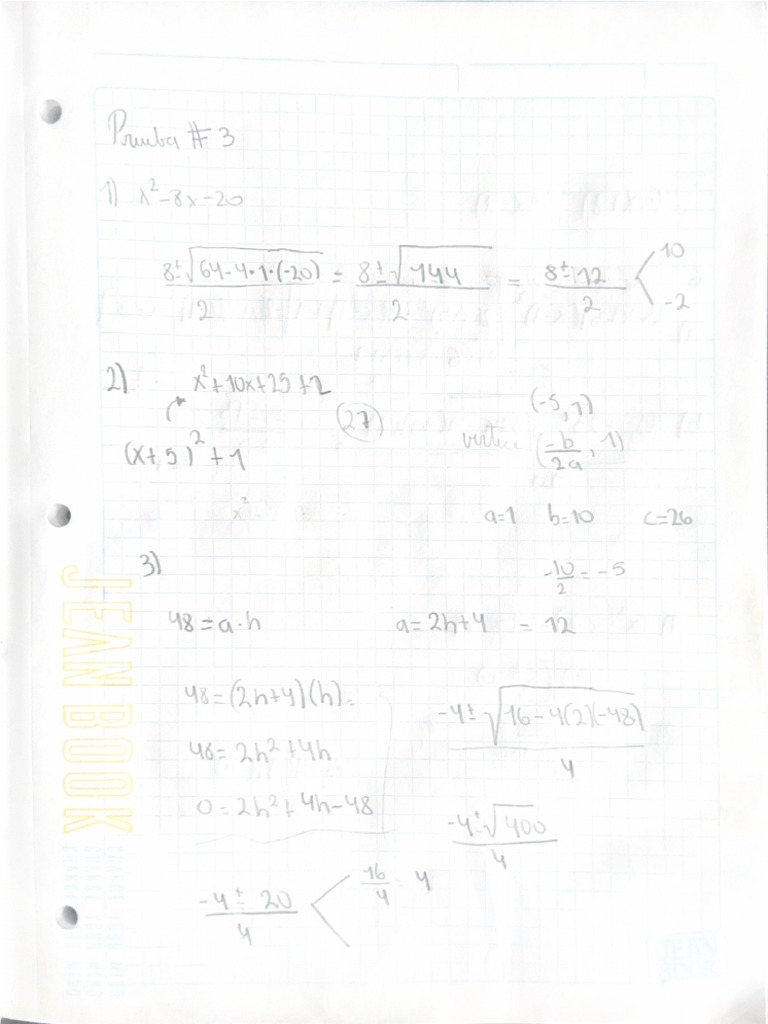 Prueba # 3
1) x²-8x-20
8±√(64-4·1·(-20)) / 2 = 8±√144 / 2 = 8±12 / 2 < 10
-2
2) x²+10x+25+2
(27)
(x+5)²+1
(-5,1)
vertice (-b/2a, 1)
a=1 b=10 c=26
x²-
-10/2 = -5
3)
48 = a·h a=2h+4 = 12
48=(2h+4)(h)=
48=2h²+4h
0=2h²+4h-48
-4±√(16-4(2)(-48)) / 4
-4±√400 / 4
-4±20 / 4 < 16/4 = 4
JEAN BOOK
JEAN BOOK